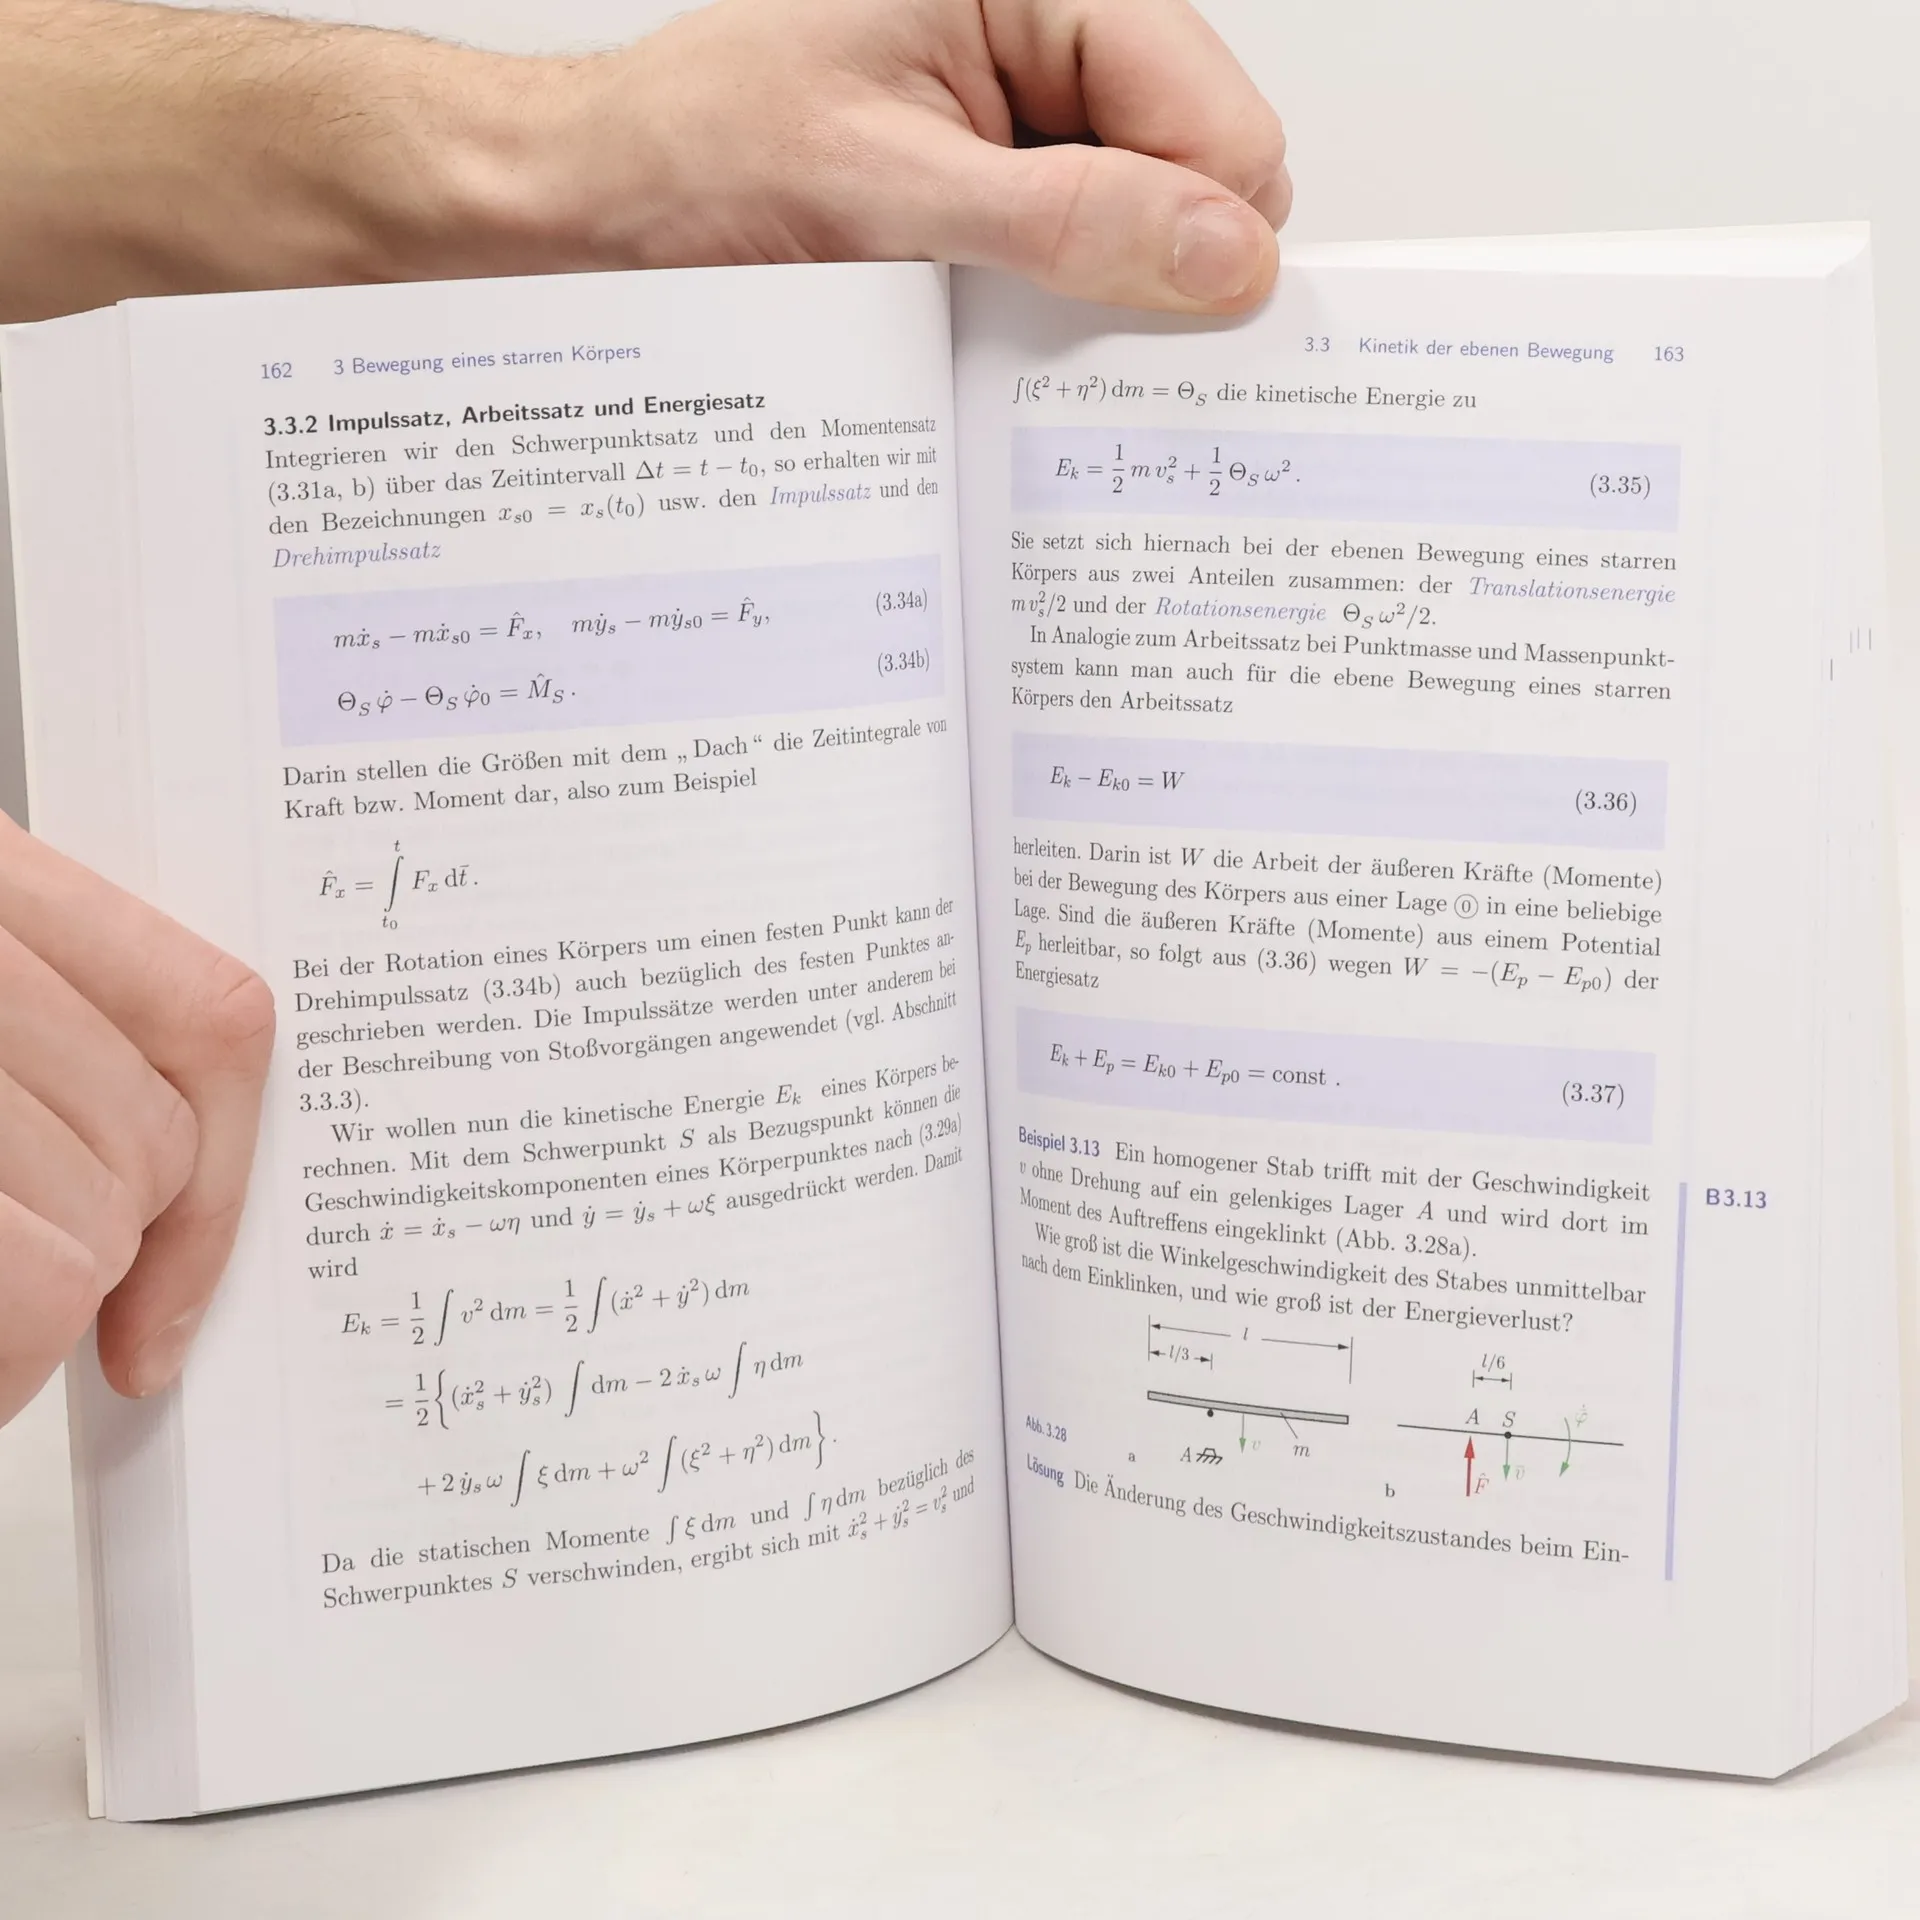 162 3 Bewegung eines starren Körpers
3.3.2 Impulssatz, Arbeitssatz und Energiesatz
Integrieren wir den Schwerpunktsatz und den Momentensatz
(3.31a, b) über das Zeitintervall Δt = t − t₀, so erhalten wir mit
den Bezeichnungen xₛ₀ = xₛ(t₀) usw. den Impulssatz und den
Drehimpulssatz
mẋₛ − mẋₛ₀ = F̂ₓ, mẏₛ − mẏₛ₀ = F̂_y, (3.34a)
Θ_S φ̇ − Θ_S φ̇₀ = M̂_S . (3.34b)
Darin stellen die Größen mit dem „Dach“ die Zeitintegrale von
Kraft bzw. Moment dar, also zum Beispiel
F̂ₓ = ∫_{t₀}^{t} Fₓ dt̄ .
Bei der Rotation eines Körpers um einen festen Punkt kann der
Drehimpulssatz (3.34b) auch bezüglich des festen Punktes an-
geschrieben werden. Die Impulssätze werden unter anderem bei
der Beschreibung von Stoßvorgängen angewendet (vgl. Abschnitt
3.3.3).
Wir wollen nun die kinetische Energie E_k eines Körpers be-
rechnen. Mit dem Schwerpunkt S als Bezugspunkt können die
Geschwindigkeitskomponenten eines Körperpunktes nach (3.29a)
durch ẋ = ẋₛ − ωη und ẏ = ẏₛ + ωξ ausgedrückt werden. Damit
wird
E_k = 1/2 ∫ v² dm = 1/2 ∫(ẋ² + ẏ²) dm
= 1/2 {(ẋₛ² + ẏₛ²) ∫ dm − 2 ẋₛ ω ∫ η dm
+ 2 ẏₛ ω ∫ ξ dm + ω² ∫(ξ² + η²) dm} .
Da die statischen Momente ∫ ξ dm und ∫ η dm bezüglich des
Schwerpunktes S verschwinden, ergibt sich mit ẋₛ² + ẏₛ² = vₛ² und
3.3 Kinetik der ebenen Bewegung 163
∫(ξ² + η²) dm = Θ_S die kinetische Energie zu
E_k = 1/2 m vₛ² + 1/2 Θ_S ω² . (3.35)
Sie setzt sich hiernach bei der ebenen Bewegung eines starren
Körpers aus zwei Anteilen zusammen: der Translationsenergie
m vₛ²/2 und der Rotationsenergie Θ_S ω²/2.
In Analogie zum Arbeitssatz bei Punktmasse und Massenpunkt-
system kann man auch für die ebene Bewegung eines starren
Körpers den Arbeitssatz
E_k − E_k0 = W (3.36)
herleiten. Darin ist W die Arbeit der äußeren Kräfte (Momente)
bei der Bewegung des Körpers aus einer Lage ⓪ in eine beliebige
Lage. Sind die äußeren Kräfte (Momente) aus einem Potential
E_p herleitbar, so folgt aus (3.36) wegen W = −(E_p − E_p0) der
Energiesatz
E_k + E_p = E_k0 + E_p0 = const . (3.37)
Beispiel 3.13 Ein homogener Stab trifft mit der Geschwindigkeit
v ohne Drehung auf ein gelenkiges Lager A und wird dort im
Moment des Auftreffens eingeklinkt (Abb. 3.28a).
Wie groß ist die Winkelgeschwindigkeit des Stabes unmittelbar
nach dem Einklinken, und wie groß ist der Energieverlust?
B3.13
l
l/3
A
v
m
a
l/6
A S
φ̇
F̂
v̄
b
Abb. 3.28
Lösung Die Änderung des Geschwindigkeitszustandes beim Ein-